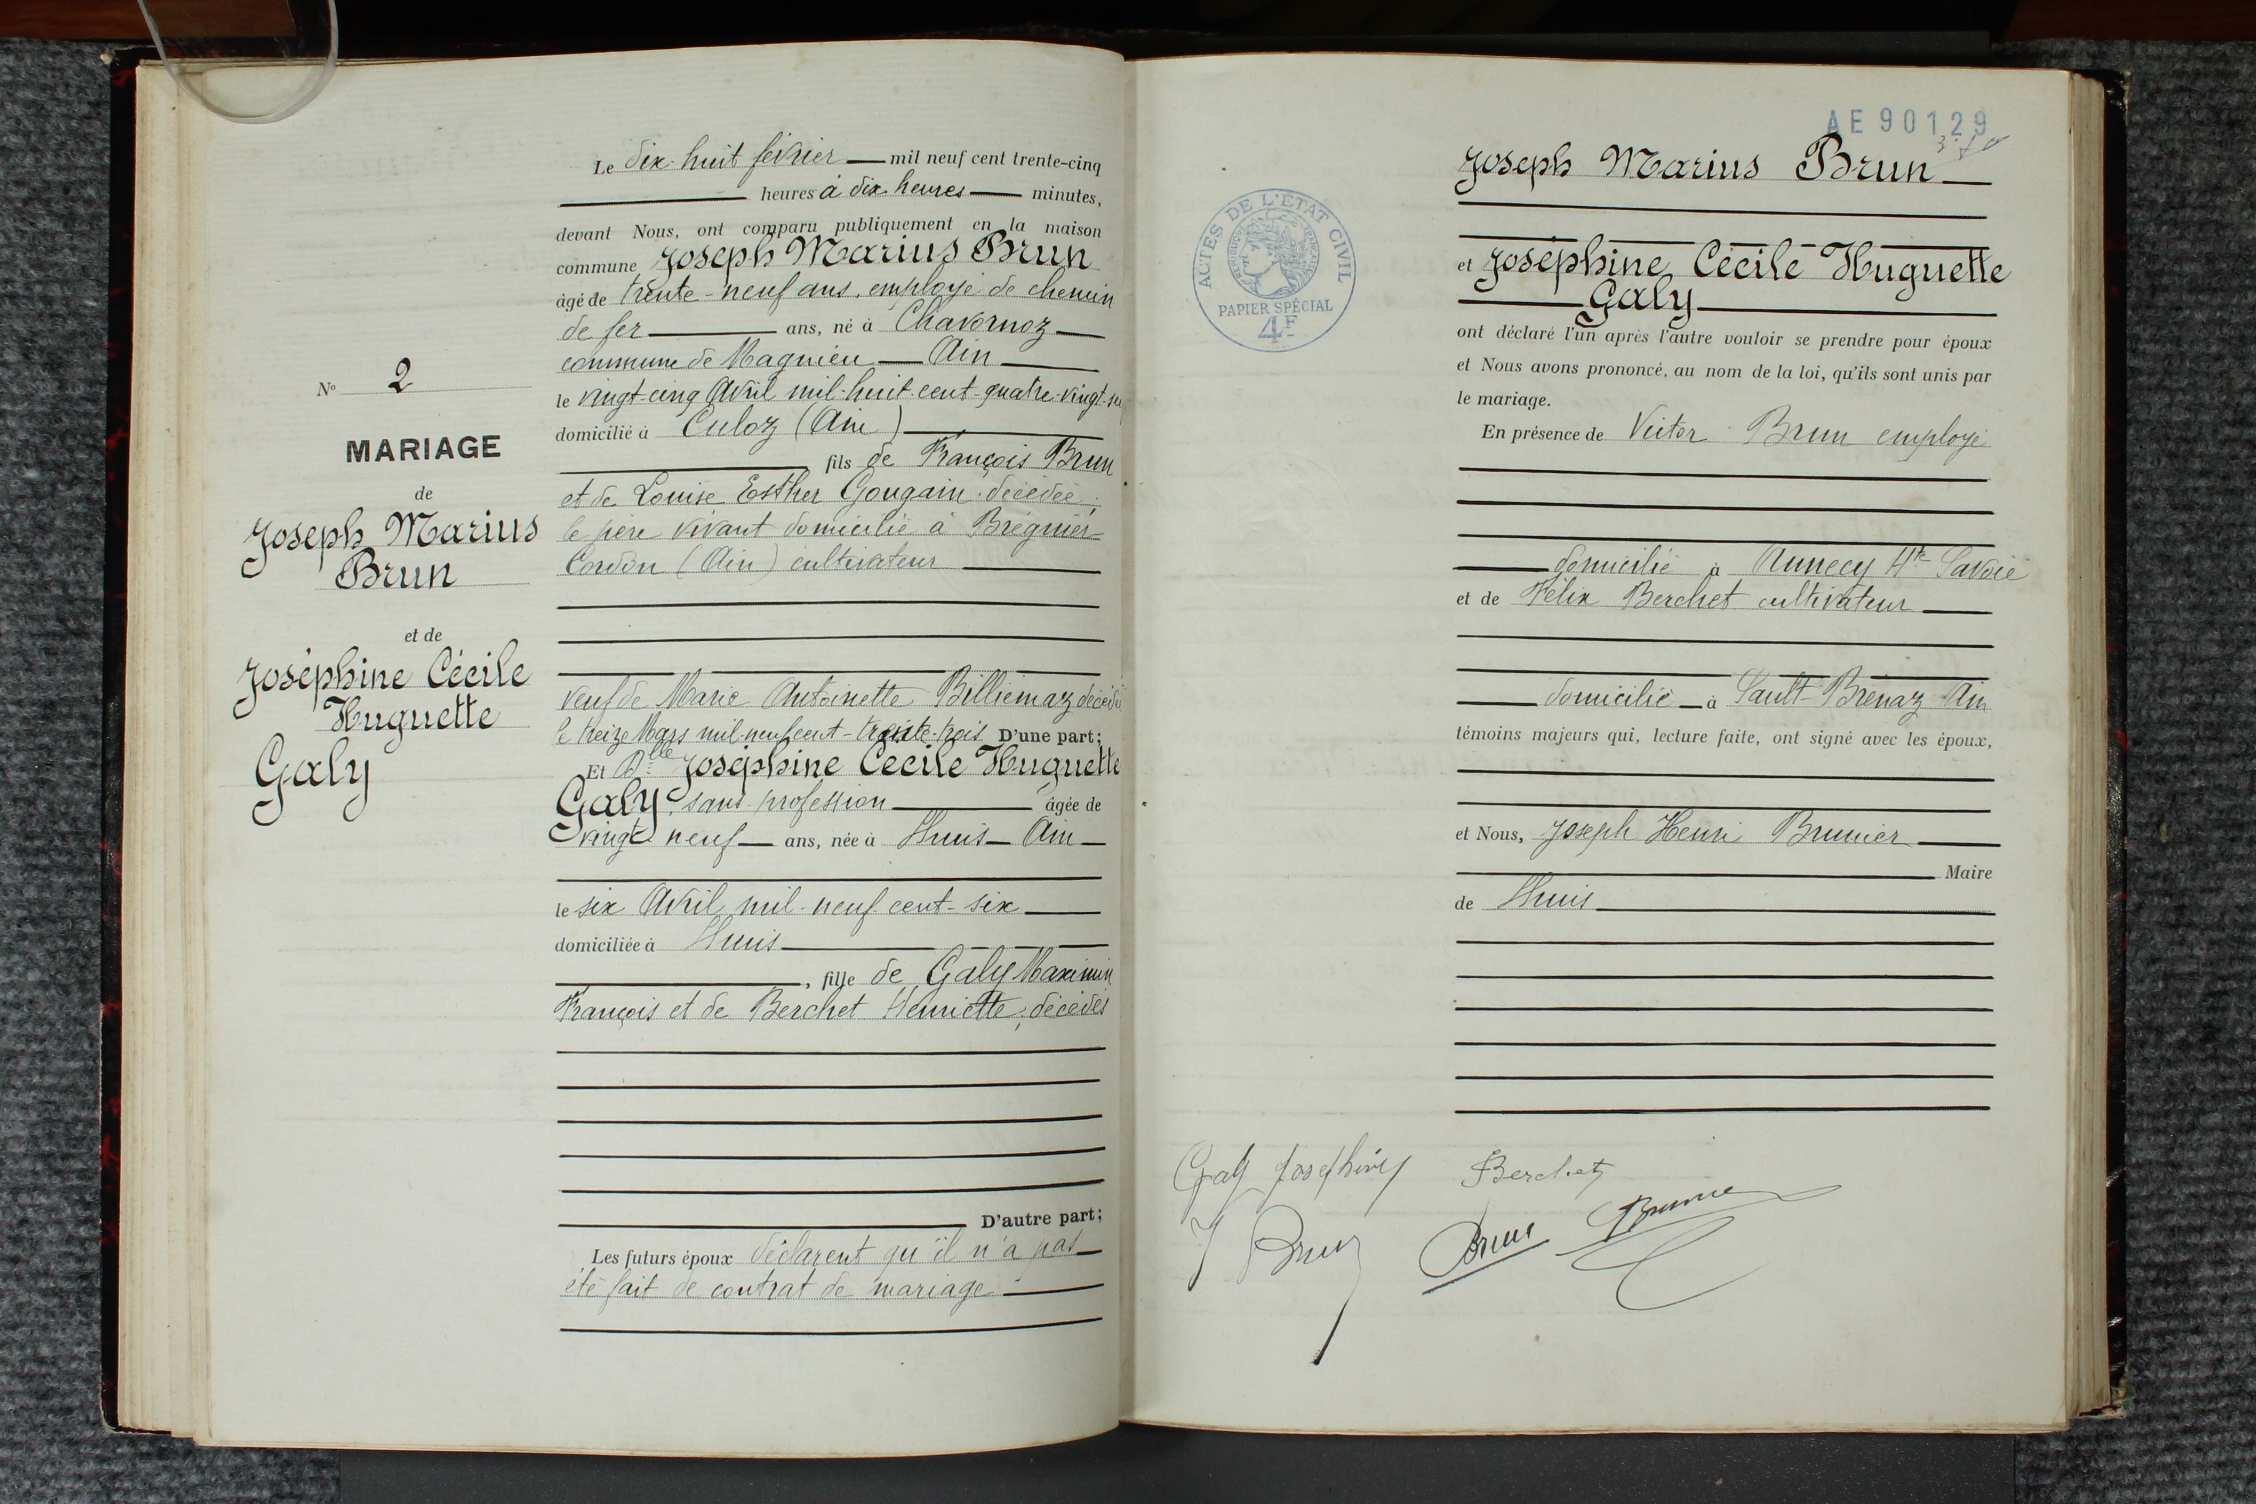 N° 2
MARIAGE
de
Joseph Marius
Brun
et de
Joséphine Cécile
Huguette
Galy
Le dix-huit février mil neuf cent trente-cinq
heures à dix heures minutes,
devant Nous, ont comparu publiquement en la maison
commune Joseph Marius Brun
âgé de trente-neuf ans, employé de chemin
de fer ans, né à Chavornoz
commune de Magnieu Ain
le vingt-cinq Avril mil-huit-cent-quatre-vingt
domicilié à Culoz (Ain)
fils de François Brun
et de Louise Esther Gougain décédée;
le père vivant domicilié à Brégnier-
Cordon (Ain) cultivateur
veuf de Marie Antoinette Billiémaz
le treize Mars mil-neuf cent-trente-trois D'une part;
Et Dlle Joséphine Cécile Huguette
Galy, sans profession âgée de
vingt neuf ans, née à Lhuis Ain
le six Avril mil-neuf cent-six
domiciliée à Lhuis
, fille de Galy Maximin
François et de Berchet Henriette, décédés
D'autre part;
Les futurs époux déclarent qu'il n'a pas
été fait de contrat de mariage
AE 90129
ACTES DE L'ÉTAT CIVIL
RÉPUBLIQUE FRANÇAISE
PAPIER SPÉCIAL
4F
Joseph Marius Brun
et Joséphine Cécile Huguette
Galy
ont déclaré l'un après l'autre vouloir se prendre pour époux
et Nous avons prononcé, au nom de la loi, qu'ils sont unis par
le mariage.
En présence de Victor Brun employé
domicilié à Annecy Hte Savoie
et de Félix Berchet cultivateur
domicilié à Sault-Brénaz Ain
témoins majeurs qui, lecture faite, ont signé avec les époux,
et Nous, Joseph Henri Brunier
Maire
de Lhuis
Galy Joséphine Berchet
J Brun Brun Brunier